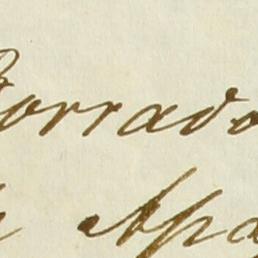 Borrado
Apa